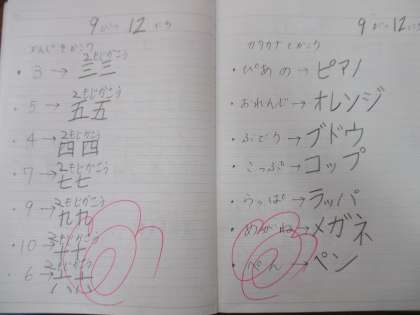 9がつ12にち
かんじをかこう
2もじかこう
・3→三三
2もじかこう
・5→五五
2もじかこう
・4→四四
2もじかこう
・7→七七
2もじかこう
・9→九九
2もじかこう
・10→十十
2もじかこう
・6→六六
9がつ12にち
カタカナでかこう
・ぴあの→ピアノ
・おれんじ→オレンジ
・ぶどう→ブドウ
・こっぷ→コップ
・らっぱ→ラッパ
・めがね→メガネ
・ぺん→ペン